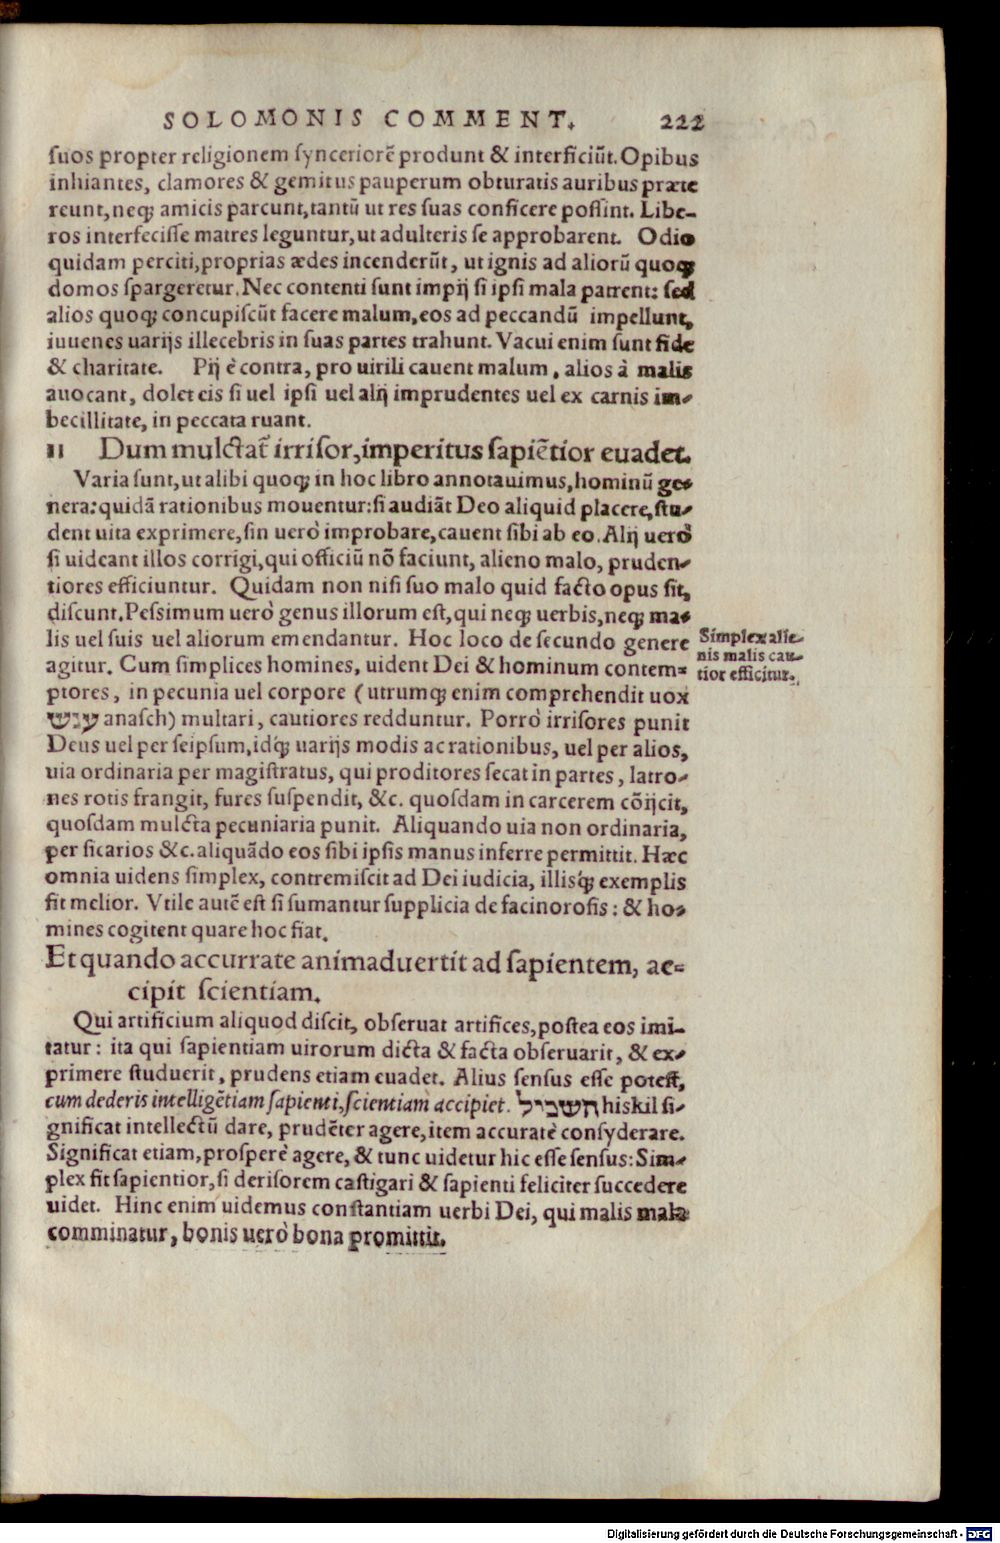 SOLOMONIS COMMENT. 222
ſuos propter religionem ſynceriorẽ produnt & interficiũt. Opibus
inhiantes, clamores & gemitus pauperum obturatis auribus præte
reunt, neq; amicis parcunt, tantũ ut res ſuas conficere poſſint. Libe-
ros interfeciſſe matres leguntur, ut adulteris ſe approbarent. Odio
quidam perciti, proprias ædes incenderũt, ut ignis ad aliorũ quoq;
domos ſpargeretur. Nec contenti ſunt impij ſi ipſi mala patrent: ſed
alios quoq; concupiſcũt facere malum, eos ad peccandũ impellunt,
iuuenes uarijs illecebris in ſuas partes trahunt. Vacui enim ſunt fide
& charitate. Pij è contra, pro uirili cauent malum, alios à malis
auocant, dolet eis ſi uel ipſi uel alij imprudentes uel ex carnis im-
becillitate, in peccata ruant.
11 Dum mulctat̃ irriſor, imperitus ſapiẽtior euadet.
Varia ſunt, ut alibi quoq; in hoc libro annotauimus, hominũ ge-
nera: quidã rationibus mouentur: ſi audiãt Deo aliquid placere, ſtu-
dent uita exprimere, ſin uerò improbare, cauent ſibi ab eo. Alij uerò
ſi uideant illos corrigi, qui officiũ nõ faciunt, alieno malo, pruden-
tiores efficiuntur. Quidam non niſi ſuo malo quid facto opus ſit,
diſcunt. Peſsimum uerò genus illorum eſt, qui neq; uerbis, neq; ma-
lis uel ſuis uel aliorum emendantur. Hoc loco de ſecundo genere
agitur. Cum ſimplices homines, uident Dei & hominum contem-
ptores, in pecunia uel corpore (utrumq; enim comprehendit uox
ענש anaſch) multari, cautiores redduntur. Porrò irriſores punit
Deus uel per ſeipſum, idq́; uarijs modis ac rationibus, uel per alios,
uia ordinaria per magiſtratus, qui proditores ſecat in partes, latro-
nes rotis frangit, fures ſuſpendit, &c. quoſdam in carcerem cõijcit,
quoſdam mulcta pecuniaria punit. Aliquando uia non ordinaria,
per ſicarios &c. aliquãdo eos ſibi ipſis manus inferre permittit. Hæc
omnia uidens ſimplex, contremiſcit ad Dei iudicia, illisq́; exemplis
fit melior. Vtile autẽ eſt ſi ſumantur ſupplicia de facinoroſis: & ho-
mines cogitent quare hoc fiat.
Simplex alie-
nis malis cau-
tior efficitur.
Et quando accurrate animaduertit ad ſapientem, ac-
cipit ſcientiam.
Qui artificium aliquod diſcit, obſeruat artifices, poſtea eos imi-
tatur: ita qui ſapientiam uirorum dicta & facta obſeruarit, & ex-
primere ſtuduerit, prudens etiam euadet. Alius ſenſus eſſe poteſt,
cum dederis intelligẽtiam ſapienti, ſcientiam accipiet. השכיל hiskil ſi-
gnificat intellectũ dare, prudẽter agere, item accuratè conſyderare.
Significat etiam, proſperè agere, & tunc uidetur hic eſſe ſenſus: Sim-
plex fit ſapientior, ſi deriſorem caſtigari & ſapienti feliciter ſuccedere
uidet. Hinc enim uidemus conſtantiam uerbi Dei, qui malis mala
comminatur, bonis uerò bona promittit.
Digitalisierung gefördert durch die Deutsche Forschungsgemeinschaft - DFG